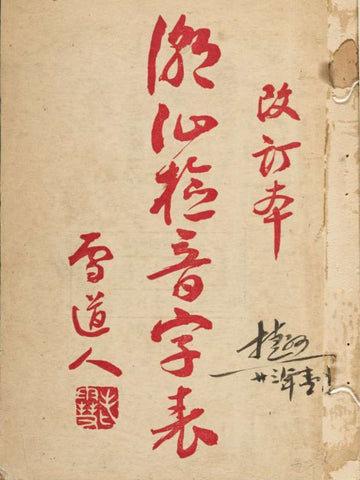 改訂本
潮汕檢音字表
雪道人